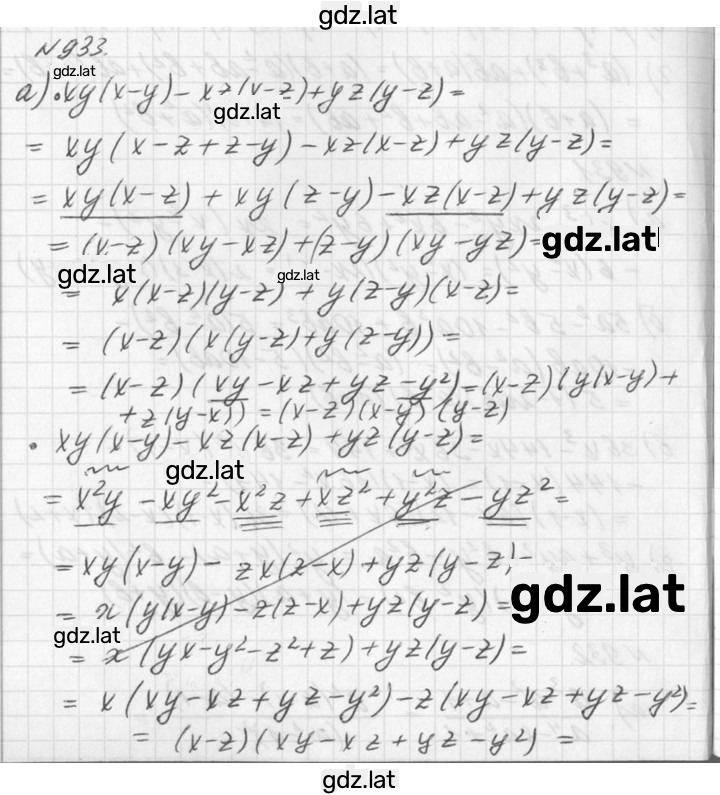 gdz.lat
N933.
gdz.lat
а) • xy(x-y) - xz(x-z) + yz(y-z) =
gdz.lat
= xy(x-z+z-y) - xz(x-z) + yz(y-z) =
= xy(x-z) + xy(z-y) - xz(x-z) + yz(y-z) =
= (x-z)(xy-xz) + (z-y)(xy-yz) =
gdz.lat
gdz.lat
gdz.lat
= x(x-z)(y-z) + y(z-y)(x-z) =
= (x-z)(x(y-z)+y(z-y)) =
= (x-z)(xy-xz+yz-y²) = (x-z)(y(x-y)+
+z(y-x)) = (x-z)(x-y)(y-z)
• xy(x-y) - xz(x-z) + yz(y-z) =
gdz.lat
= x²y - xy² - x²z + xz² + y²z - yz² =
= xy(x-y) - zx(z-x) + yz(y-z) =
gdz.lat
= x(y(x-y) - z(z-x) + yz(y-z) =
gdz.lat
= x(yx-y²-z²+z) + yz(y-z) =
= x(xy-xz+yz-y²) - z(xy-xz+yz-y²) =
= (x-z)(xy-xz+yz-y²) =
gdz.lat